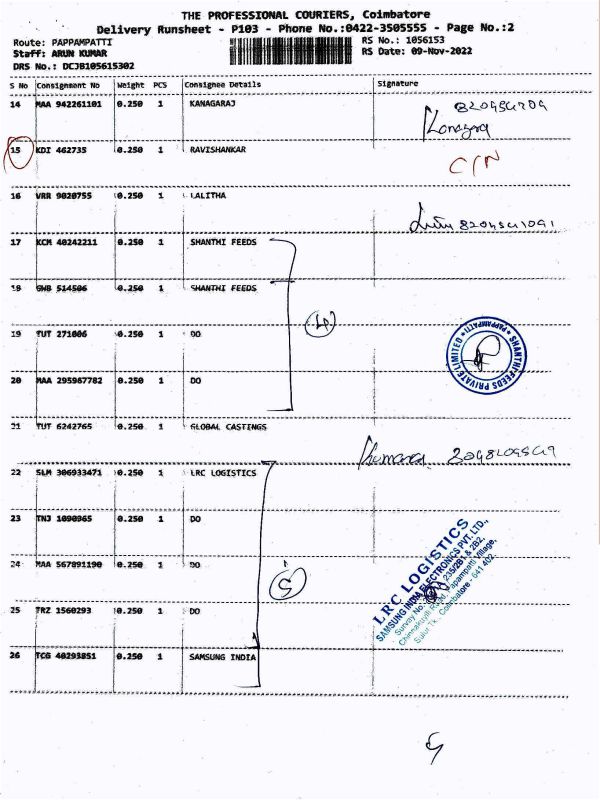 THE PROFESSIONAL COURIERS, Coimbatore
Delivery Runsheet - P103 - Phone No.:0422-3505555 - Page No.:2
Route: PAPPAMPATTI
RS No.: 1056153
Staff: ARUN KUMAR
RS Date: 09-Nov-2022
DRS No.: DCJB105615302
S No Consignment No Weight PCS Consignee Details Signature
14 MAA 942261101 0.250 1 KANAGARAJ
15 KDI 462735 0.250 1 RAVISHANKAR
C/N
16 VRR 9020755 0.250 1 LALITHA
17 KCM 40242211 0.250 1 SHANTHI FEEDS
18 GWB 514506 0.250 1 SHANTHI FEEDS
4
19 TUT 271006 0.250 1 DO
SHANTHI FEEDS PRIVATE LIMITED * PAPPAMPATTI *
20 MAA 295967782 0.250 1 DO
21 TUT 6242765 0.250 1 GLOBAL CASTINGS
22 SLM 306933471 0.250 1 LRC LOGISTICS
23 TNJ 1090965 0.250 1 DO
24 MAA 567891190 0.250 1 DO
5
25 TRZ 1560293 0.250 1 DO
LRC LOGISTICS
SAMSUNG INDIA ELECTRONICS PVT. LTD.,
Survey No. 235/2B1 & 2B2,
Pappampatti Village,
Sulur Tk, Coimbatore - 641 402.
26 TCG 40293851 0.250 1 SAMSUNG INDIA